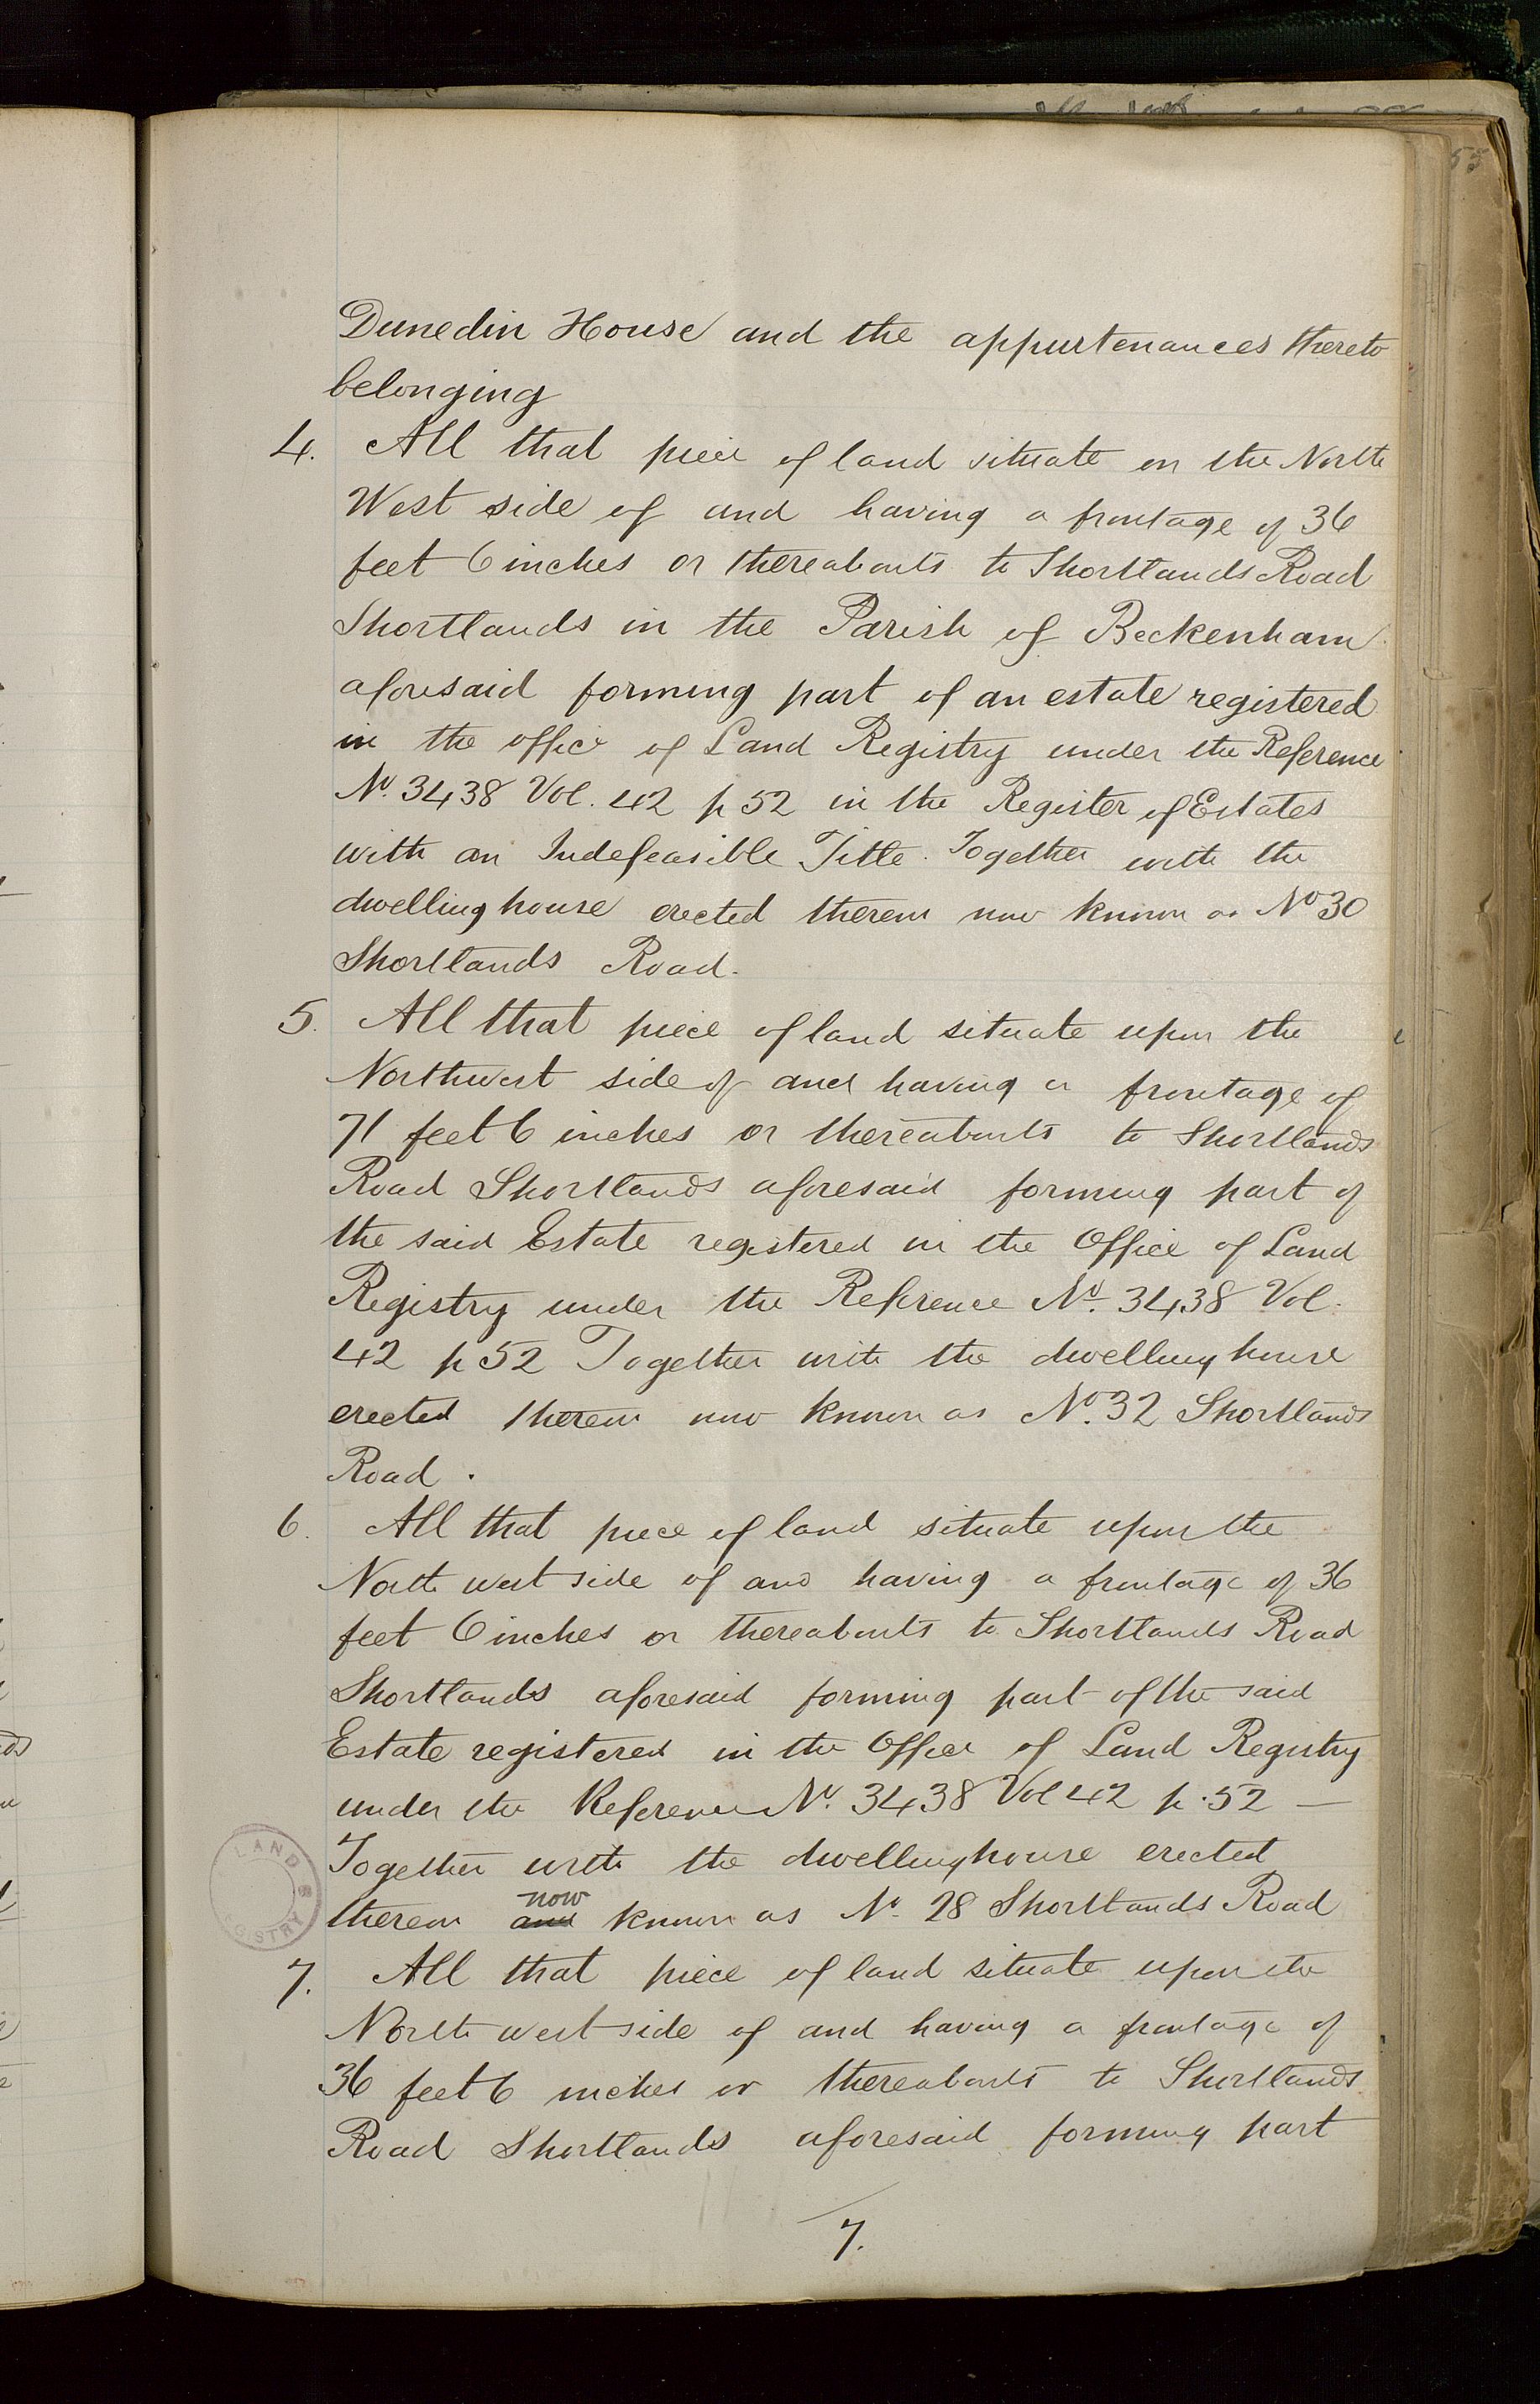 Dunedin House and the appurtenances thereto
belonging
4. All that piece of land situate on the North
West side of and having a frontage of 36
feet 6 inches or thereabouts to Shortlands Road
Shortlands in the Parish of Beckenham
aforesaid forming part of an estate registered
in the office of Land Registry under the Reference
No. 3438 Vol. 42 p 52 in the Register of Estates
with an Indefeasible Title. Together with the
dwelling house erected thereon now known as No 30
Shortlands Road.
5. All that piece of land situate upon the
Northwest side of and having a frontage of
71 feet 6 inches or thereabouts to Shortlands
Road Shortlands aforesaid forming part of
the said Estate registered in the Office of Land
Registry under the Reference No. 3438 Vol.
42 p 52 Together with the dwelling house
erected thereon now known as No. 32 Shortlands
Road.
6. All that piece of land situate upon the
North west side of and having a frontage of 36
feet 6 inches or thereabouts to Shortlands Road
Shortlands aforesaid forming part of the said
Estate registered in the Office of Land Registry
under the Reference No. 3438 Vol 42 p. 52 —
Together with the dwellinghouse erected
now
thereon and known as No. 28 Shortlands Road
LAND
REGISTRY
7. All that piece of land situate upon the
North west side of and having a frontage of
36 feet 6 inches or thereabouts to Shortlands
Road Shortlands aforesaid forming part
7.